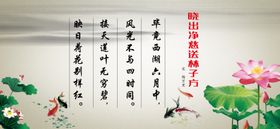 晓出净慈送林子方
毕竟西湖六月中，
风光不与四时同。
接天莲叶无穷碧，
映日荷花别样红。